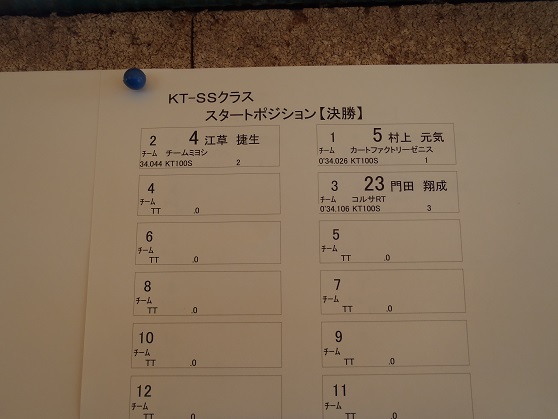 KT-SSクラス
スタートポジション【決勝】
2 4 江草 捷生
チーム チームミヨシ
34.044 KT100S 2
1 5 村上 元気
チーム カートファクトリーゼニス
0'34.026 KT100S 1
4
チーム
TT .0
3 23 門田 翔成
チーム コルサRT
0'34.106 KT100S 3
6
チーム
TT .0
5
チーム
TT .0
8
チーム
TT .0
7
チーム
TT .0
10
チーム
TT .0
9
チーム
TT .0
12
チーム
TT .0
11
チーム
TT .0